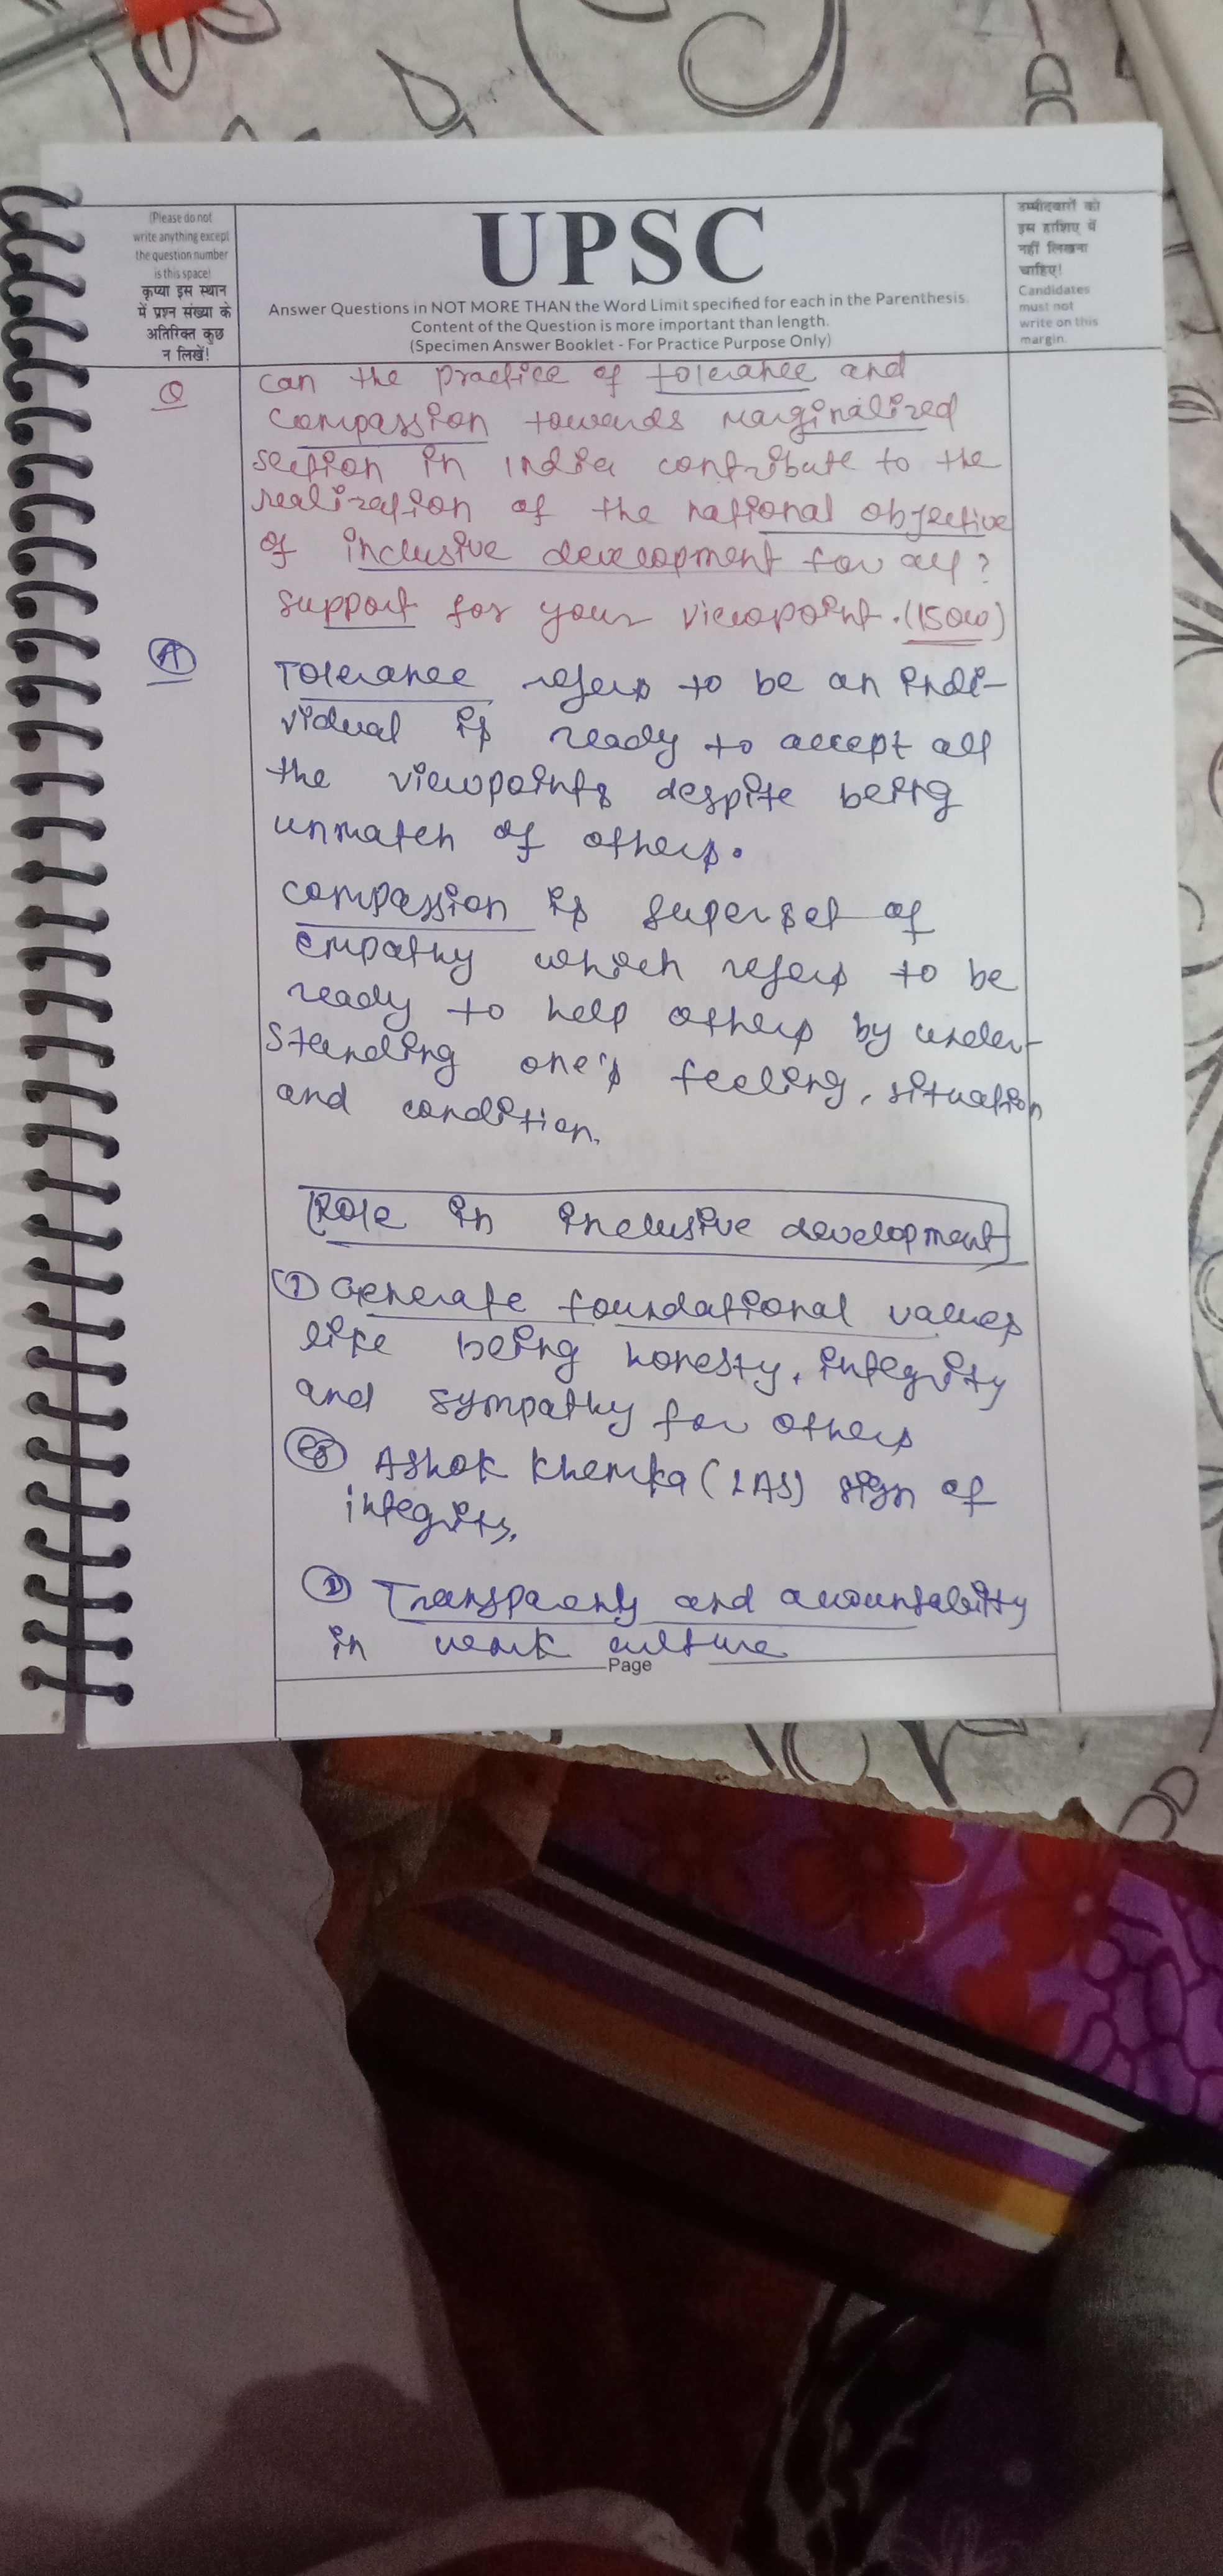 (Please do not
write anything except
the question number
is this space)
कृप्या इस स्थान
में प्रश्न संख्या के
अतिरिक्त कुछ
न लिखें!
UPSC
Answer Questions in NOT MORE THAN the Word Limit specified for each in the Parenthesis.
Content of the Question is more important than length.
(Specimen Answer Booklet - For Practice Purpose Only)
उम्मीदवारों को
इस हाशिए में
नहीं लिखना
चाहिए!
Candidates
must not
write on this
margin.
Q can the practice of tolerance and
compassion towards marginalized
section in India contribute to the
realization of the national objective
of inclusive development for all?
Support for your viewpoint. (150w)
A Tolerance refers to be an indi-
vidual is ready to accept all
the viewpoints despite being
unmatch of others.
Compassion is superset of
empathy which refers to be
ready to help others by under-
standing one's feeling, situation
and condition.
Role in inclusive development
① Generate foundational values
like being honesty, integrity
and sympathy for others
eg Ashok Khemka (IAS) sign of
integrity.
② Transparenty and accountability
in work culture
Page